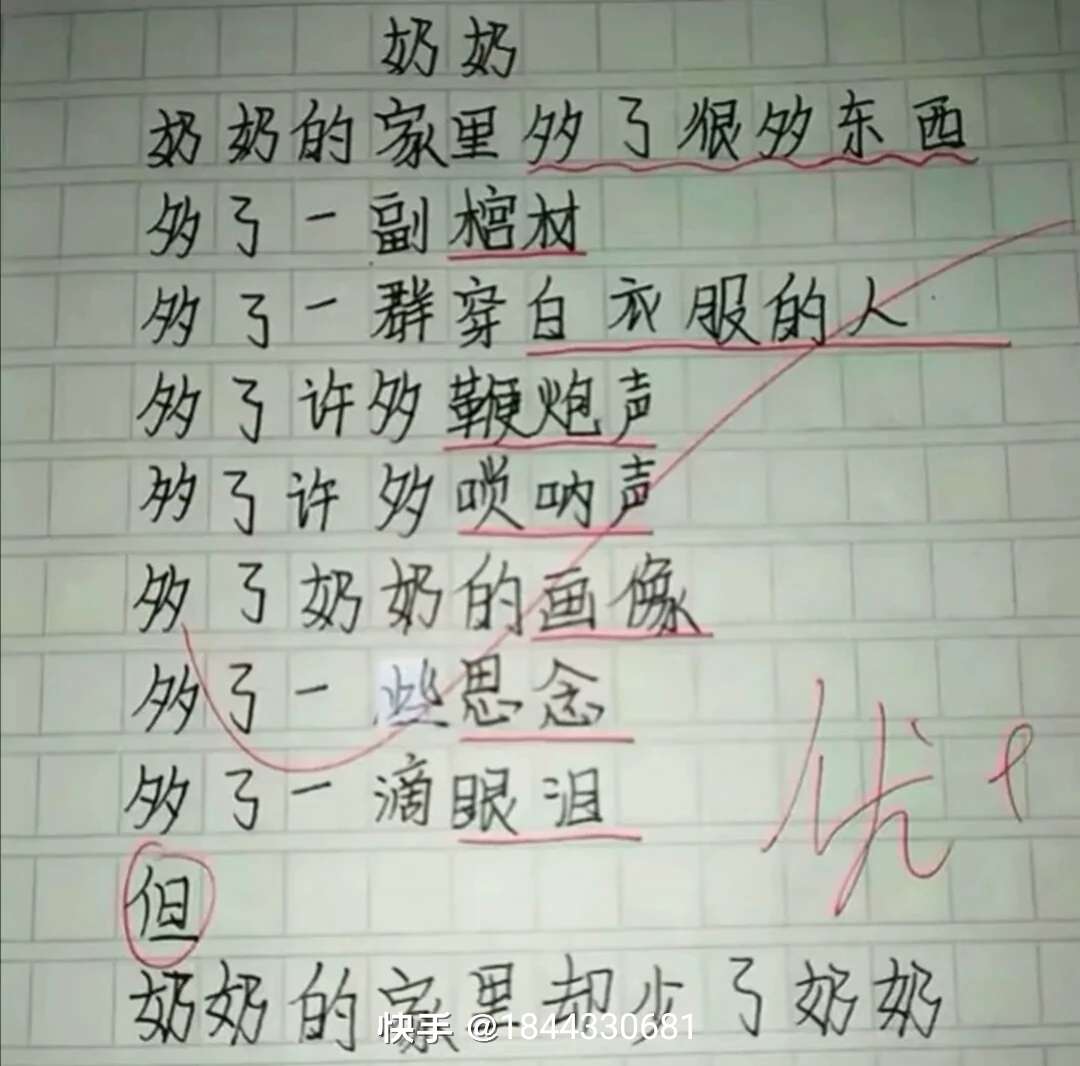 奶奶
奶奶的家里多了很多东西
多了一副棺材
多了一群穿白衣服的人
多了许多鞭炮声
多了许多唢呐声
多了奶奶的画像
多了一些思念
多了一滴眼泪
优+
但
奶奶的家里却少了奶奶
快手 @1844330681